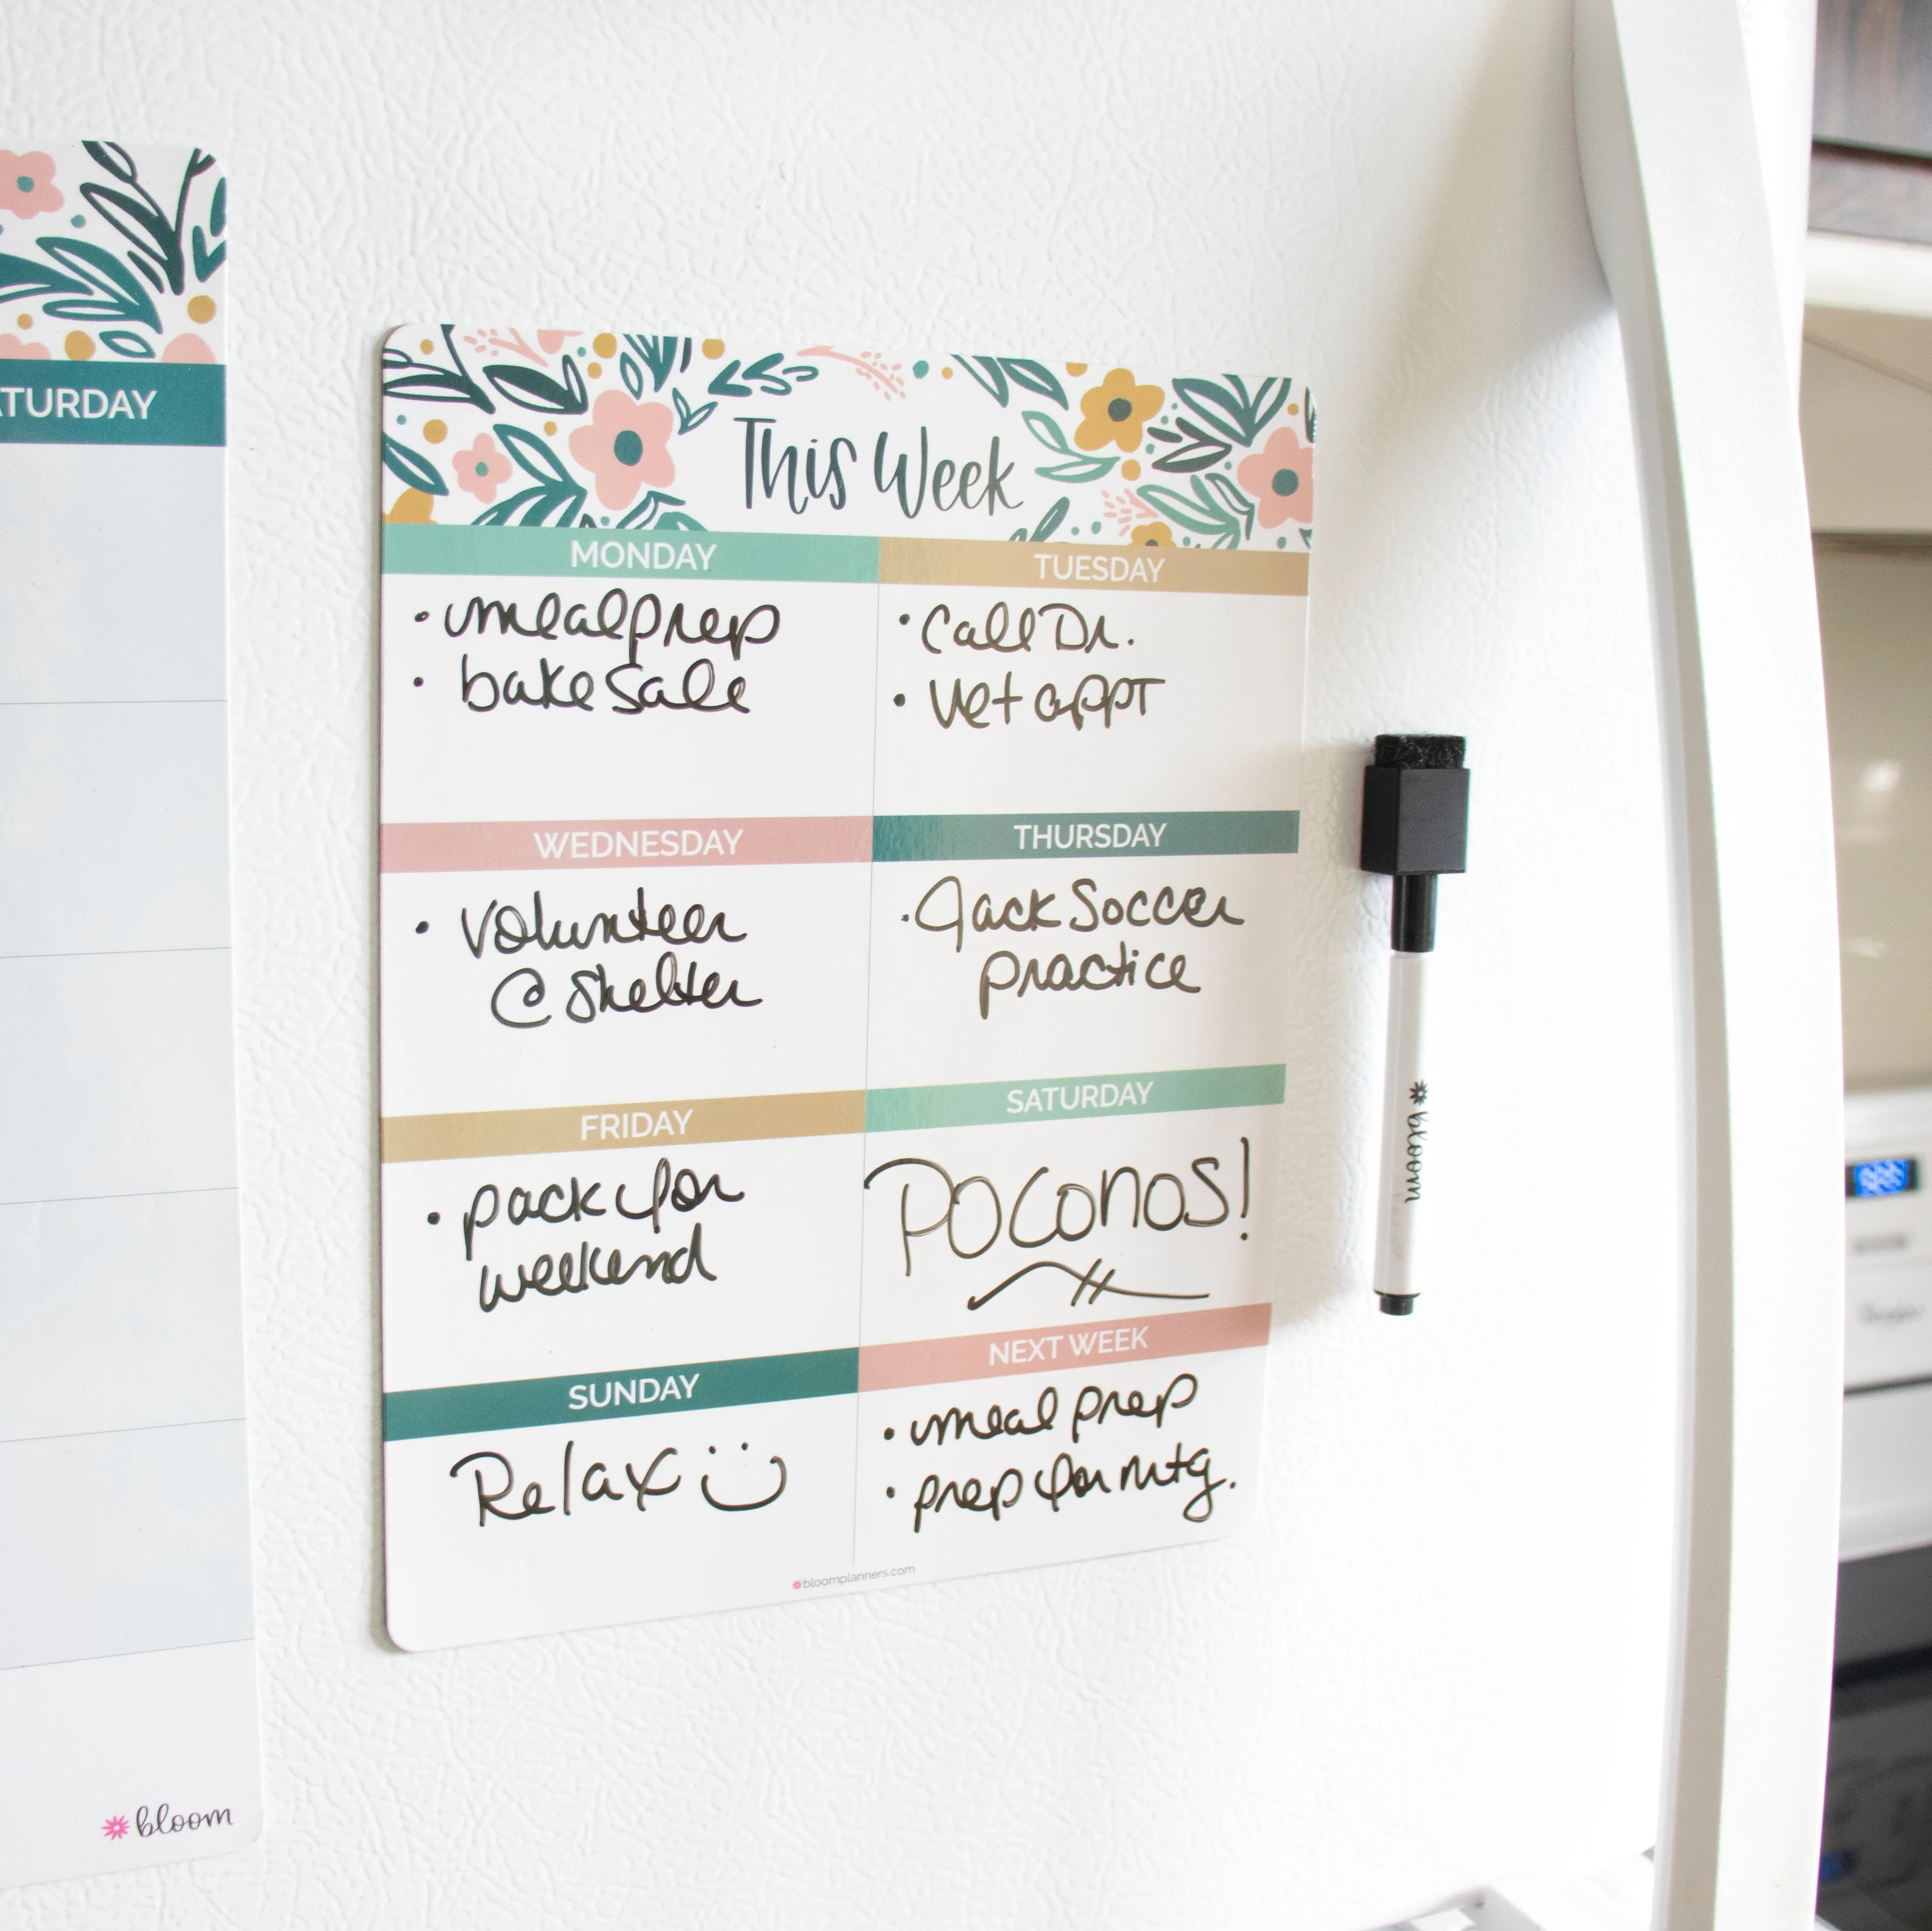 ATURDAY
This Week
MONDAY
• meal prep
• bake sale
TUESDAY
• Call Dr.
• Vet appt
WEDNESDAY
• Volunteer
@ Shelter
THURSDAY
• Jack Soccer
practice
FRIDAY
• pack for
weekend
SATURDAY
POCONOS!
SUNDAY
Relax
NEXT WEEK
• meal prep
• prep for mtg.
bloomplanners.com
bloom
bloom